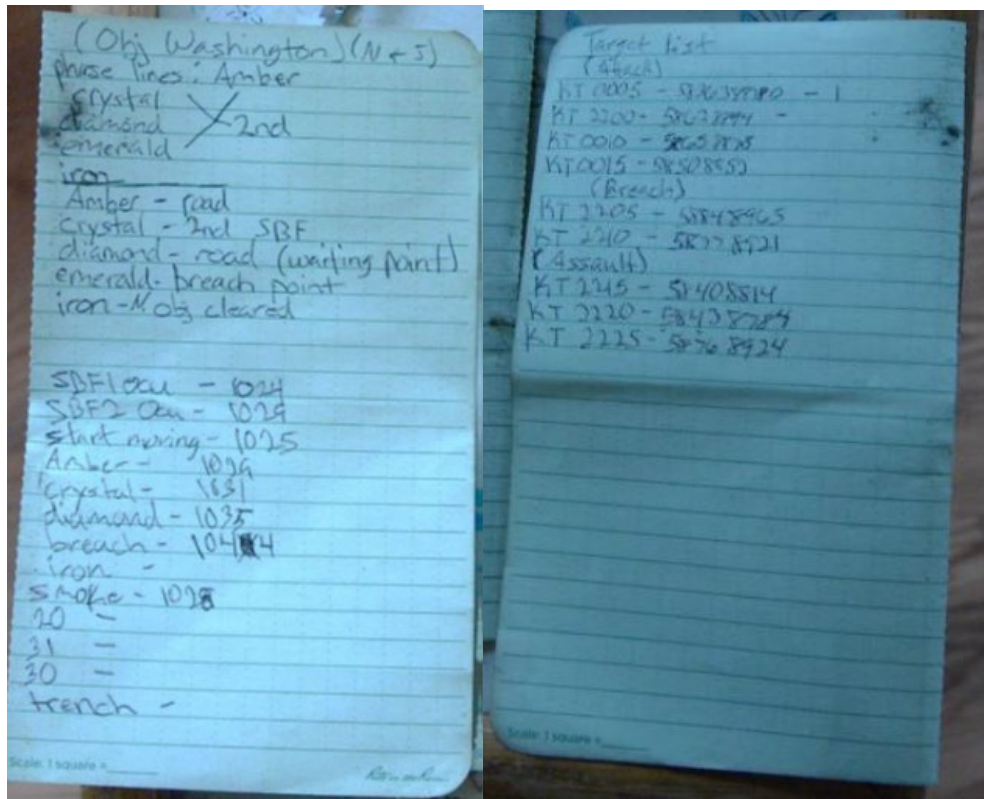 (Obj Washington) (N + S)
phase lines: Amber
crystal
diamond 2nd
emerald
iron
Amber - road
crystal - 2nd SBF
diamond - road (waiting point)
emerald - breach point
iron - N. obj cleared
SBF1 ocu - 1024
SBF2 Ocu - 1029
start moving - 1025
Amber - 1029
crystal - 1031
diamond - 1035
breach - 1044
iron -
smoke - 1028
20 -
31 -
30 -
trench -
Scale: 1 square =
Target list
(Attack)
KT 0005 - - 1
KT 2200 - -
KT 0010 -
KT 0015 - 58508953
(Breach)
KT 2205 - 58848965
KT 2210 - 58778921
(Assault)
KT 2215 - 58408814
KT 2220 - 58438784
KT 2225 - 8924
Scale: 1 square =